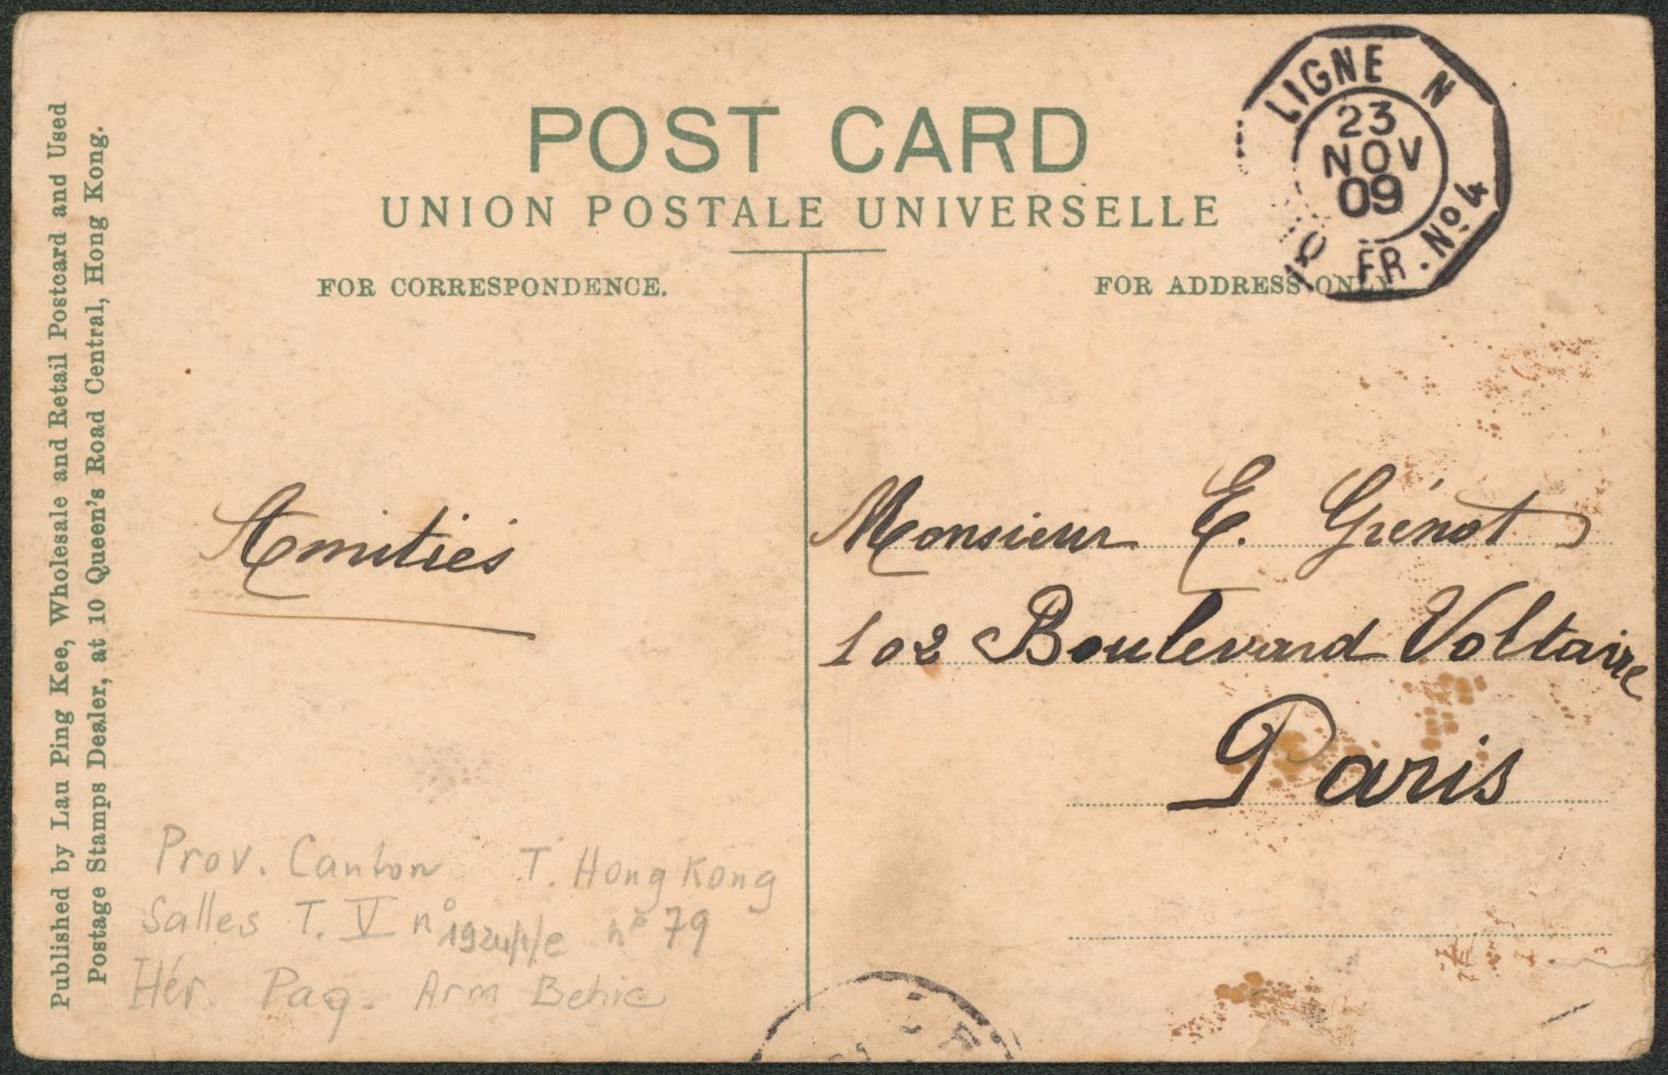 POST CARD
UNION POSTALE UNIVERSELLE
FOR CORRESPONDENCE.
FOR ADDRESS ONLY.
LIGNE N
23
NOV
09
FR. No 4
Published by Lau Ping Kee, Wholesale and Retail Postcard and Used
Postage Stamps Dealer, at 10 Queen's Road Central, Hong Kong.
Amitiés
Monsieur E. Grénot
102 Boulevard Voltaire
Paris
Prov. Canton T. Hong Kong
Salles T. V n° n° 79
Hér. Paq. Arm Behic